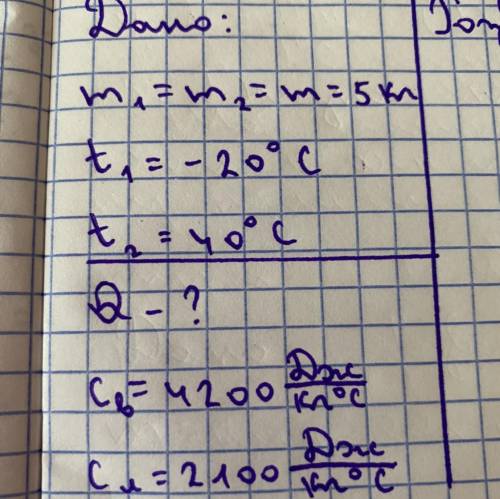 Дано:
m₁ = m₂ = m = 5 кг
t₁ = -20° C
t₂ = 40° C
Q - ?
cв = 4200 Дж/кг°C
cл = 2100 Дж/кг°C